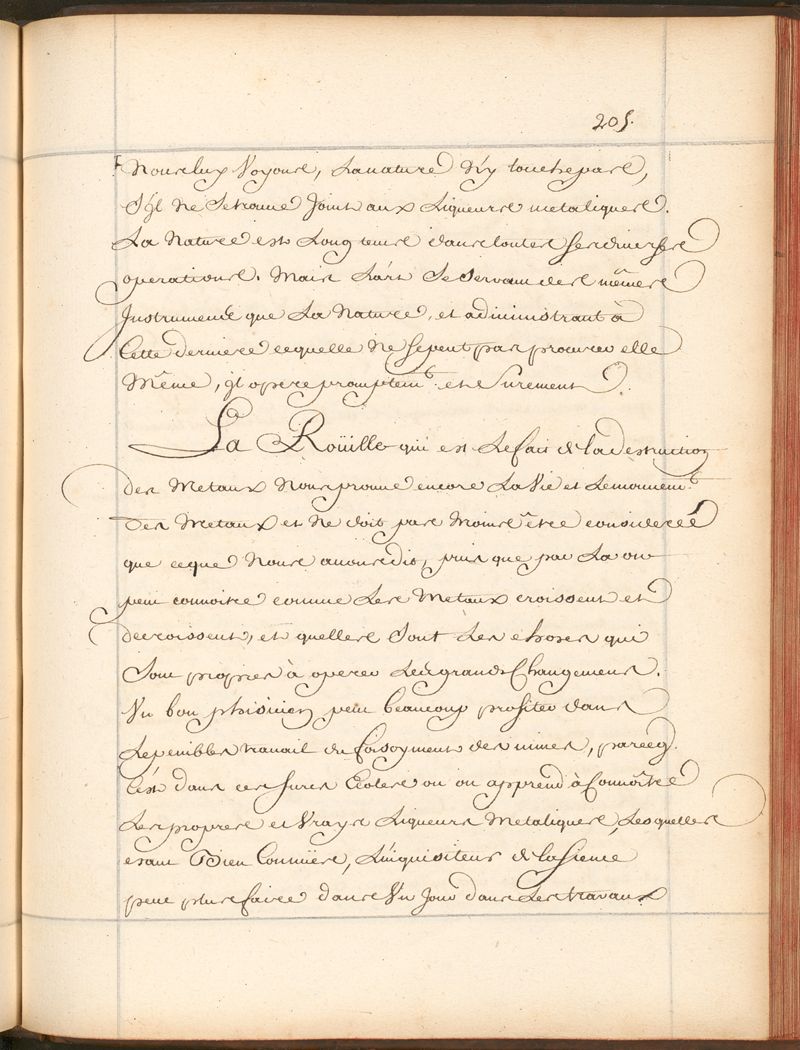 205.
Nous luy Voyons, La nature N'y touche pas,
S'jl Ne Se trouve Joint aux Liqueurs metaliques.
La Nature est Long tems dans toutes ses diverses
operations. Mais L'art Se Servant des mêmes
Jnstruments que La Nature, et administrant à
Cette derniere ce quelle Ne se peut pas procurer elle
Même, jl opere promptem.t et Surement.
La Roüille qui est Le fait de la destruction
Des Metaux Nous prouve encore La Vie et Le mouvem.t
Des Metaux et Ne doit pas Moins être considerée
que ce que Nous avons dit, puis que par La on
peut connoitre comme Les Metaux croissent et
decroissent, et quelles Sont Les choses qui
Sont propres à operer Les grands Changemens.
Un bon phisicien peut beaucoup profiter dans
Le penible travail du des mines, parceq.
C'est dans ces sures Ecoles ou on apprend à Connoître
Les propres et Vrays Liqueurs Metaliques, Lesquelles
etant Bien Connües, L'inquisiteur de la Sience
peut plus faire dans Un Jour dans Les travaux